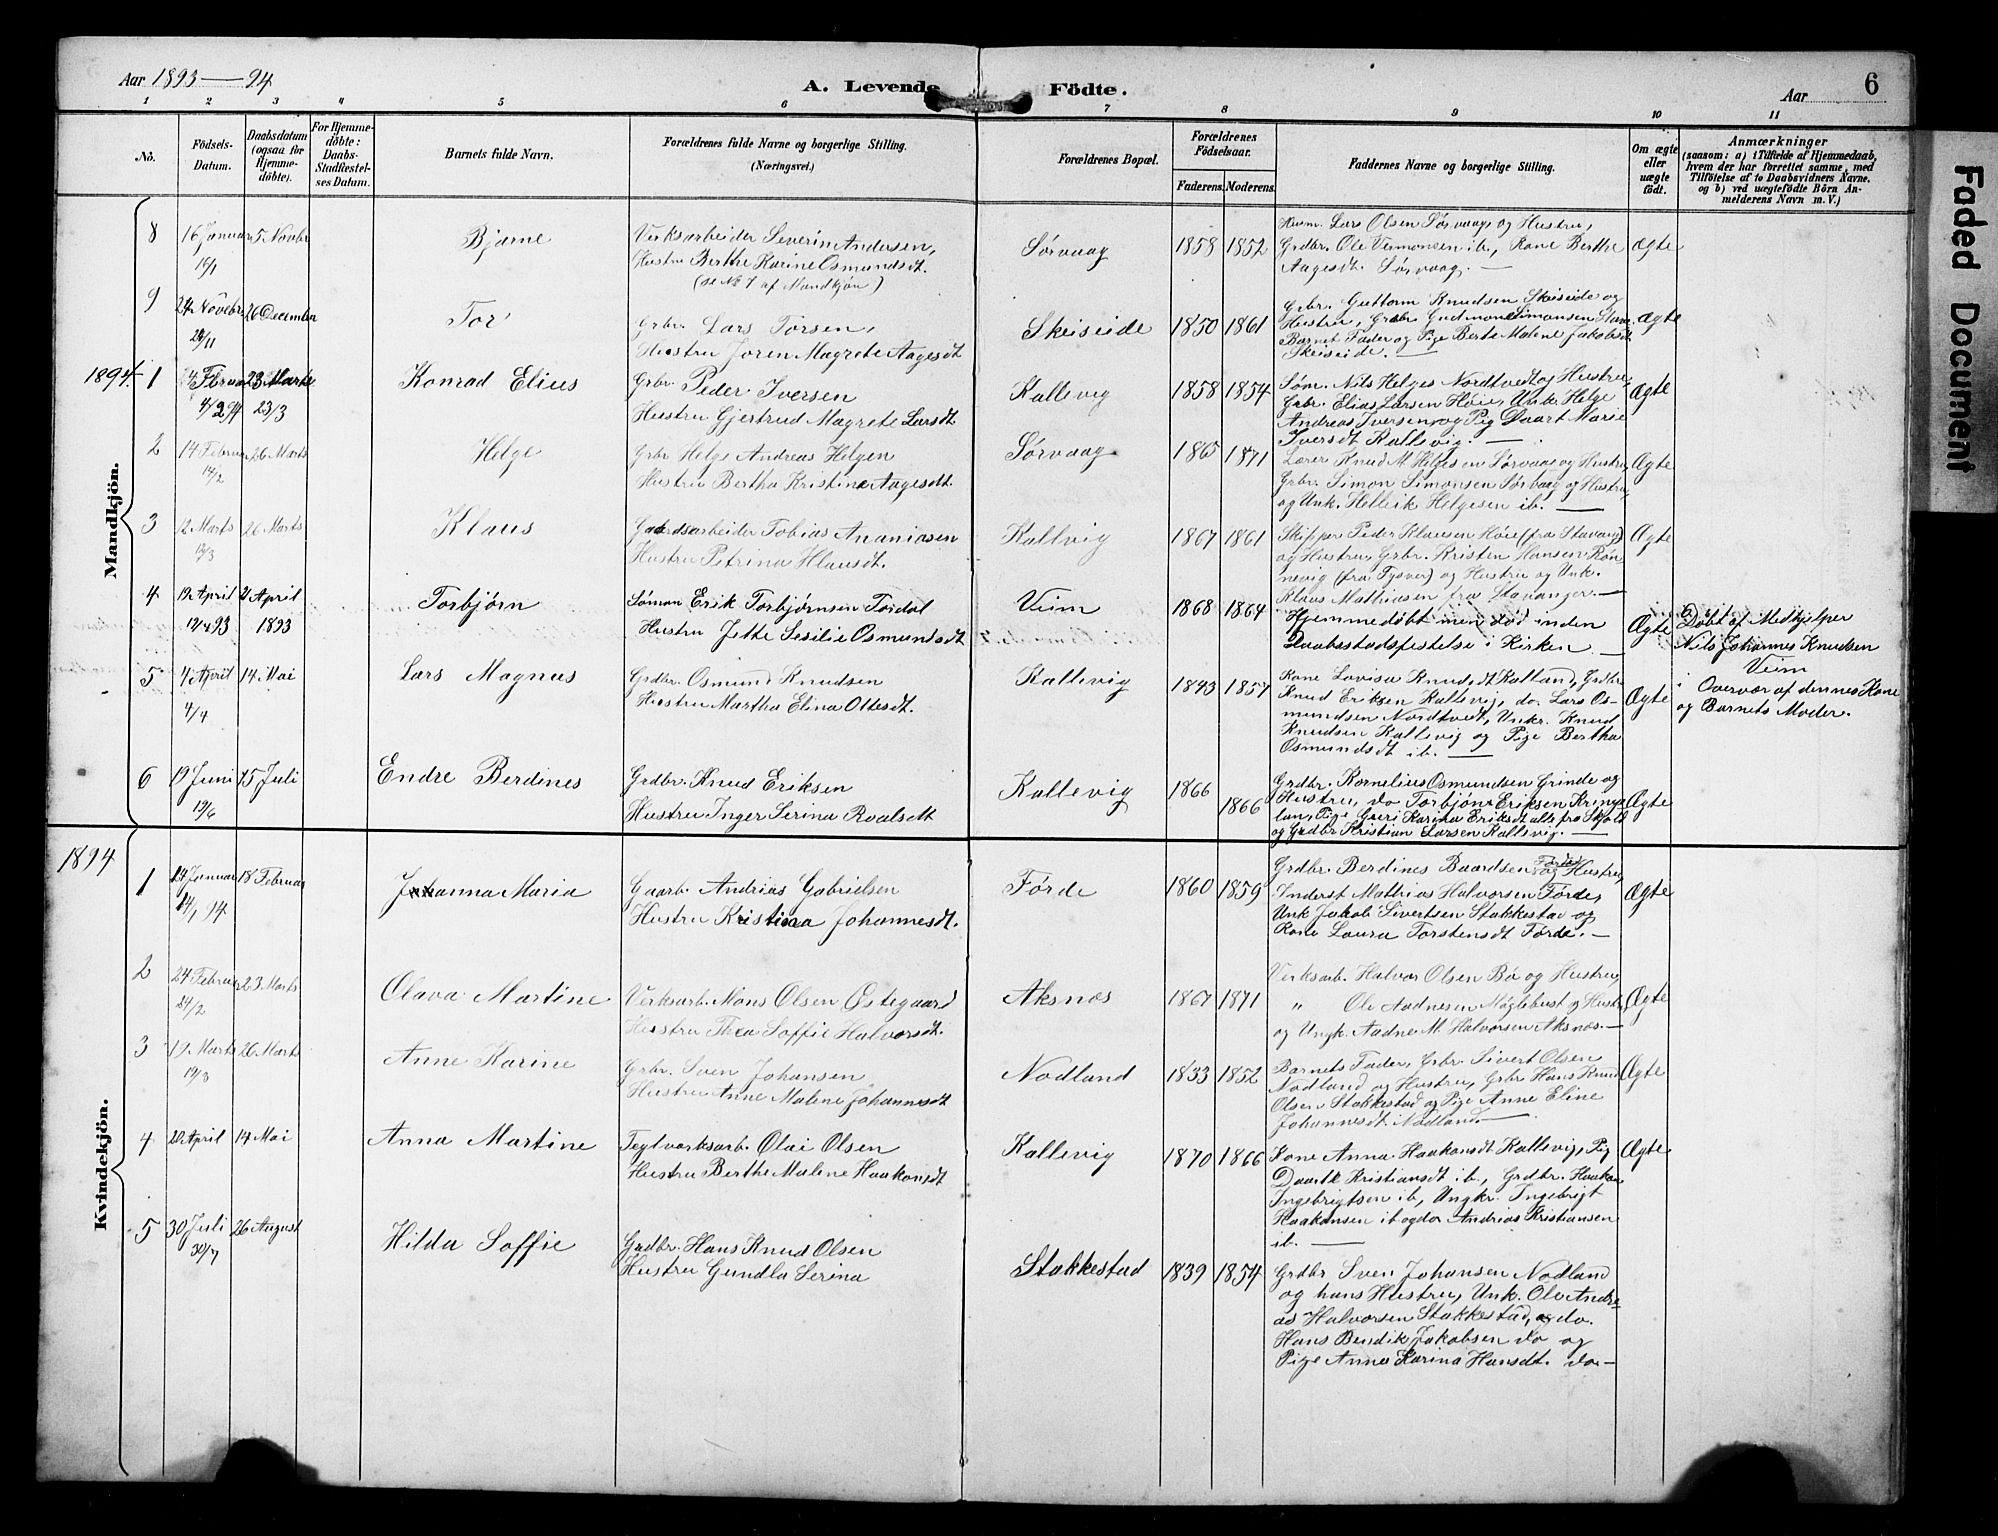 Aar 1893—94
A. Levende Födte.
Aar
6
1 2 3 4 5 6 7 8 9 10 11
No.
Födsels-
Datum.
Daabsdatum
(ogsaa for
Hjemme-
döbte).
For Hjemme-
döbte:
Daabs-
Stadfæstel-
ses Datum.
Barnets fulde Navn.
Forældrenes fulde Navne og borgerlige Stilling.
(Næringsvei.)
Forældrenes Bopæl.
Forældrenes
Födselsaar.
Faderens. Moderens.
Faddernes Navne og borgerlige Stilling.
Om ægte
eller
uægte
födt.
Anmærkninger
(saasom: a) i Tilfælde af Hjemmedaab,
hvem der har forrettet samme, med
Tilföielse af to Daabsvidners Navne.
og b) ved uægtefödte Börn An-
melderens Navn m. V.)
Faded Document
Mandkjön.
8
16 Januar
16/1
5 Novbr
Bjarne
Verksarbeider Severin Andersen,
Hustru Berthe Karine Osmundsdt.
(se No 7 af Mandkjøn)
Sørvaag
1858 1852
Husm. Lars Olsen Sørvaag og Hustru,
Grdbr. Ole Vermonsen ib., Kone Berthe
Aagesdt. Sørvaag. —
Ægte
9
24 Novebr
24/11
26 December
Tor
Grbr. Lars Torsen,
Hustru Joren Magrete Aagesdt
Skeiseide
1850 1861
Grbr. Guttorm Knudsen Skeiseide og
Hustru, Grbr Gudmon Simonsen Stum.
Barnet Fader og Pige Berte Malene Jakobsdt
Skeiseide. —
Ægte
1894
1
4 Februar
4/2 94
23 Marts
23/3
Konrad Elius
Grbr. Peder Iversen
Hustru Gjertrud Magrete Larsdt
Kallevig
1858 1854
Søm. Nils Helges Nordtvedt og Hustru,
Grbr. Elias Larsen Høie, Unk. Helge
Andreas Iversen og Pig Daart Marie
Iversdt Kallevig. —
Ægte
2
14 Februar
14/2
26 Marts
Helge
Grbr Helge Andreas Helgen
Hustru Bertha Kristine Aagesdt.
Sørvaag
1865 1871
Lærer Knud M Helgesen Sørvaag og Hustru,
Grbr. Simon Simonsen Sørvaag og Hustru,
og Unk. Helleik Helgesen ib. —
Ægte
3
12 Marts
12/3
26 Marts
Klaus
Gaardsarbeider Tobias Ananiasen
Hustru Petrina Klausdt.
Kallvig
1867 1861
Skipper Peder Klausen Høie (fra Stavang)
og Hustru, Grbr. Kristen Hansen Røn-
nevig (fra Tysver) og Hustru og Unk.
Klaus Mathiasen fra Stavanger. —
Ægte
4
19 April
19/4 93
21 April
1893
Torbjørn
Sømon Erik Torbjørnsen Tosdal
Hustru Jette Sesilie Osmundsdt
Veim
1868 1864
Hjemmedøbt men død inden
Daabsstadfestelse i Kirken —
Ægte
Døbt af Medhjelper
Nils Johannes Knudsen
Veim
i Overvær af dennes Kone
og Barnets Moder.
5
4 April
4/4
14 Mai
Lars Magnus
Grdbr. Osmund Knudsen
Hustru Martha Elina Ottesdt.
Kallevig
1843 1857
Kone Lovisa Knudsdt Kalland, Grdbr
Knud Eriksen Kallevig, do. Lars Os-
mundsen Nordtvedt, Unkr. Knud
Knudsen Kallevig og Pige Bertha
Osmundsdt ib. —
Ægte
6
19 Juni
19/6
15 Juli
Endre Berdines
Grdbr. Knud Eriksen
Hustru Inger Serina Roalsdt
Kallevig
1866 1866
Grdbr. Kornelius Osmundsen Grinde og
Hustru, do Torbjøn Eriksen Kringe-
lan, Pige Guri Karina Eriksdt alle fra Skjold
og Grdbr Kristian Larsen Kallevig. —
Ægte
Kvindekjön.
1894
1
24 Januar
24/1 94
18 Februar
Johanna Maria
Gaarb. Andrias Gabrielsen
Hustru Kristina Johannesdt.
Førde
1860 1859
Grdbr. Berdines Baardsen Førde og Hustru,
Inderst Mathias Halvorsen Førde,
Unk Jakob Sivertsen Stakkestad og
Kone Laura Torstensdt Førde. —
Ægte
2
24 Februar
24/2
23 Marts
Olava Martine
Verksarb. Mons Olsen Østegaard
Hustru Thea Soffie Halvorsdt.
Aksnæs
1867 1871
Verksarb. Halvor Olsen Bø og Hustru,
" Ole Aadnesen Møglehust og Hustr
og Ungk. Aadne M. Halvorsen Aksnæs. —
Ægte
3
19 Marts
19/3
26 Marts
Anne Karine
Grbr. Sven Johansen
Hustru Anne Malene Johannesdt
Nodland
1833 1852
Barnets Fader, Grbr. Sivert Olsen
Nodland og Hustru, Grbr Hans Knud
Olsen Stakkestad og Pige Anne Eline
Johannesdt Nodland. —
Ægte
4
20 April
14 Mai
Anna Martine
Teglværksarb. Olai Olsen
Hustru Berthe Malene Haakonsdt
Kallevig
1870 1866
Kone Anna Haakonsdt Kallevig, Pig
Daarte Kristiansdt ib., Grdbr. Haakon
Ingebrigtsen ib., Ungkr. Ingebrigt
Haakonsen ib og do Andrias Kristiansen
ib. —
Ægte
5
30 Juli
30/7
26 August
Hilda Soffie
Grdbr. Hans Knud Olsen
Hustru Gundla Serina
Stakkestad
1839 1854
Grdbr Sven Johansen Nodland
og hans Hustru, Unk. Ole Andre-
as Halvorsen Stakkestad, og do.
Hans Bendik Jakobsen do og
Pige Anna Karina Hansdt. do —